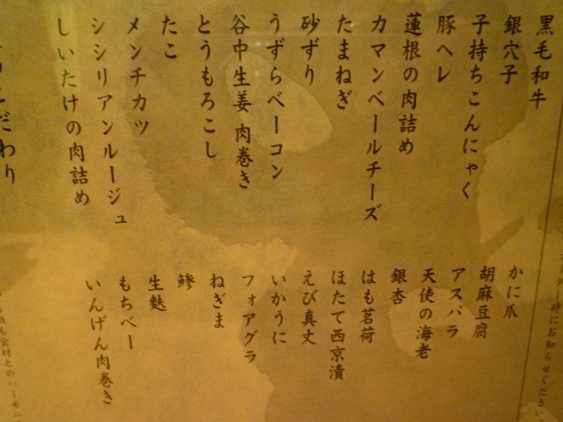 黒毛和牛
銀穴子
子持ちこんにゃく
豚ヘレ
蓮根の肉詰め
カマンベールチーズ
たまねぎ
砂ずり
うずらベーコン
谷中生姜 肉巻き
とうもろこし
たこ
メンチカツ
シシリアンルージュ
しいたけの肉詰め
かに爪
胡麻豆腐
アスパラ
天使の海老
銀杏
はも茗荷
ほたて西京漬
えび真丈
いかうに
フォアグラ
ねぎま
鯵
生麩
もちベー
いんげん肉巻き
こだわり
時にお知らせください
も食材とのハーモニ